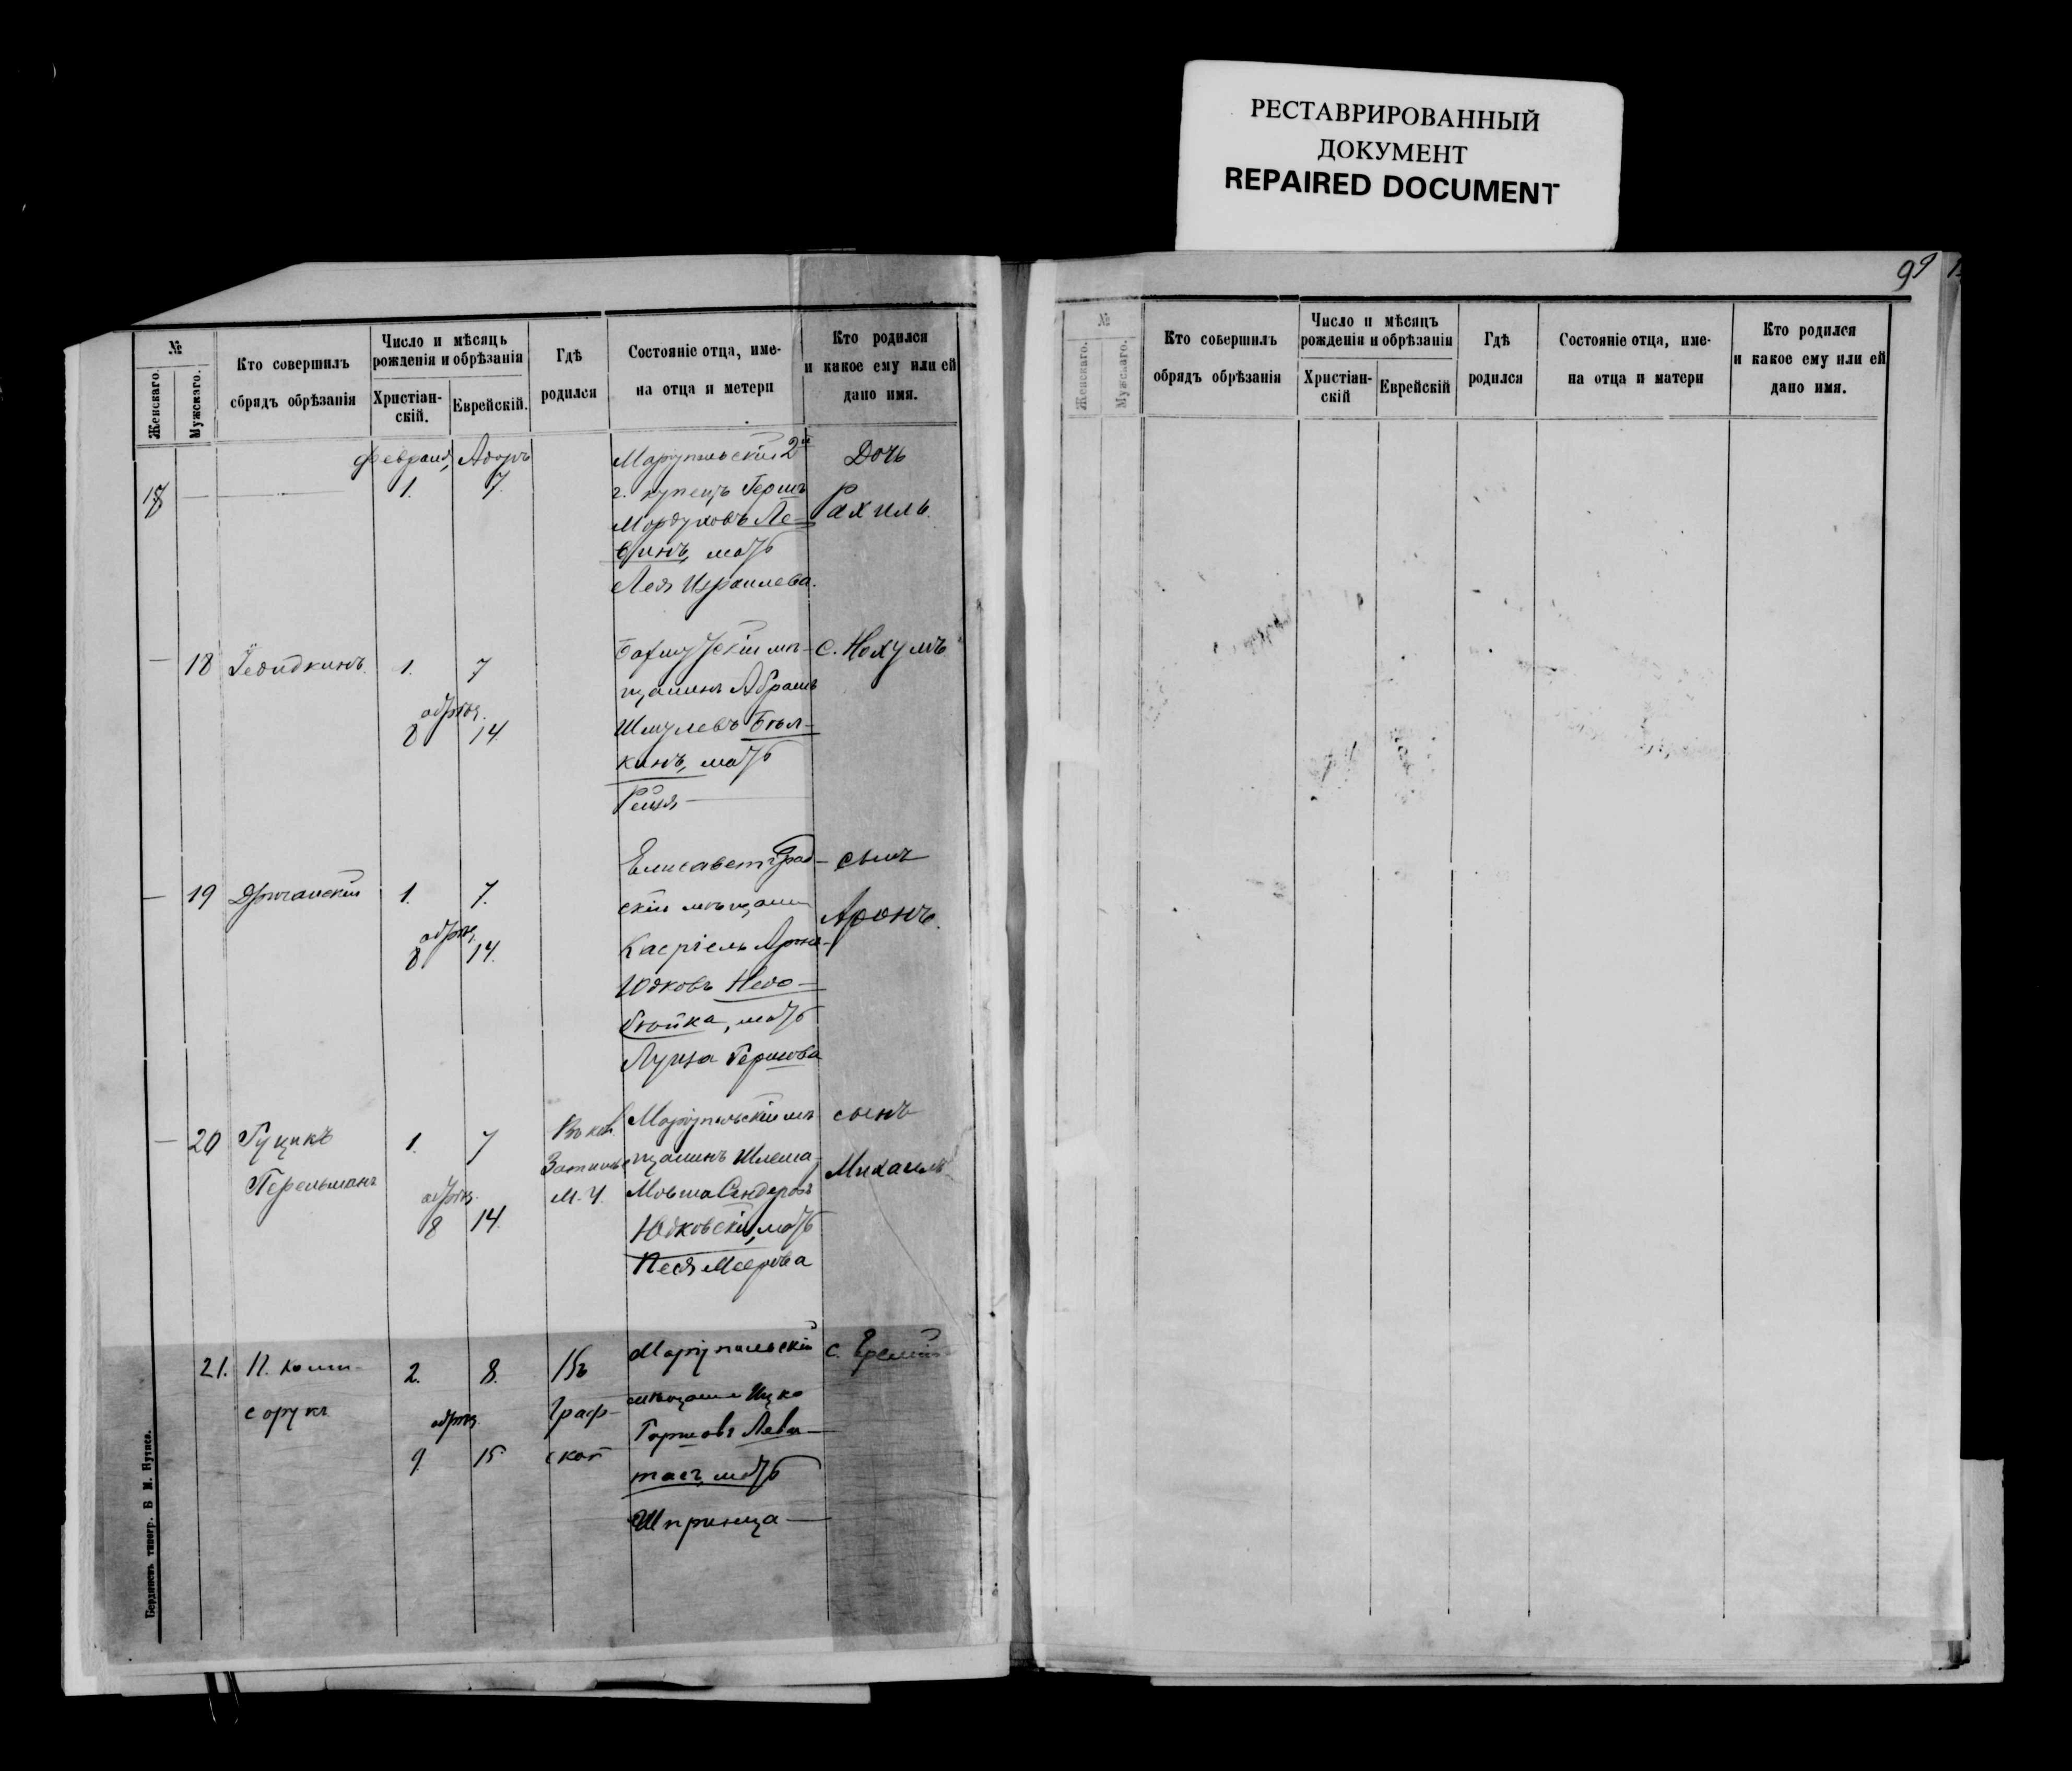 РЕСТАВРИРОВАННЫЙ
ДОКУМЕНТ
REPAIRED DOCUMENT
99
№
Женскаго.
Мужскаго.
Кто совершилъ
сбрядъ обрѣзанія
Число и мѣсяць
рожденія и обрѣзанія
Христіан-
скій.
Еврейскій.
Гдѣ
родился
Состояніе отца, име-
на отца и метери
Кто родился
и какое ему или ей
дано имя.
Февраля, Адаръ
1. 7.
Маріупольскій 2й
г. купецъ Гершъ
Мордуховъ Ле-
винъ, мать
Лея Израилева.
Дочь
Рахиль.
18
1. 7
обрѣз.
8 14
Бахмутскій мѣ-
щанинъ Абрамъ
Шмулевъ Бѣл-
кинъ, мать
с. Нохумъ
19
1. 7.
обрѣз.
8 14.
Елисаветград-
скій мѣщанин
Касріель Арон-
Юдковъ Недо-
бойка, мать
Гершова
сынъ
Аронъ.
20
Гуцикъ
Перельманъ
1. 7
обрѣз.
8 14.
Въ кол.
М. У.
Маріупольскій мѣ-
щанинъ Шлема-
Мовша Сендеровъ
Юдковскій, мать
Песя Меерова
сынъ
Михаилъ
21.
2. 8.
обрѣз.
9 15
Въ
Граф-
ской
Маріупольскій
мѣщанин Ицко
Гершовъ Леви-
тасъ, мать
Шпринца
с.
Бердянскъ типогр.
№
Женскаго.
Мужскаго.
Кто совершилъ
обрядъ обрѣзанія
Число и мѣсяцъ
рожденія и обрѣзанія
Христіан-
скій
Еврейскій
Гдѣ
родился
Состояніе отца, име-
на отца и матери
Кто родился
и какое ему или ей
дано имя.